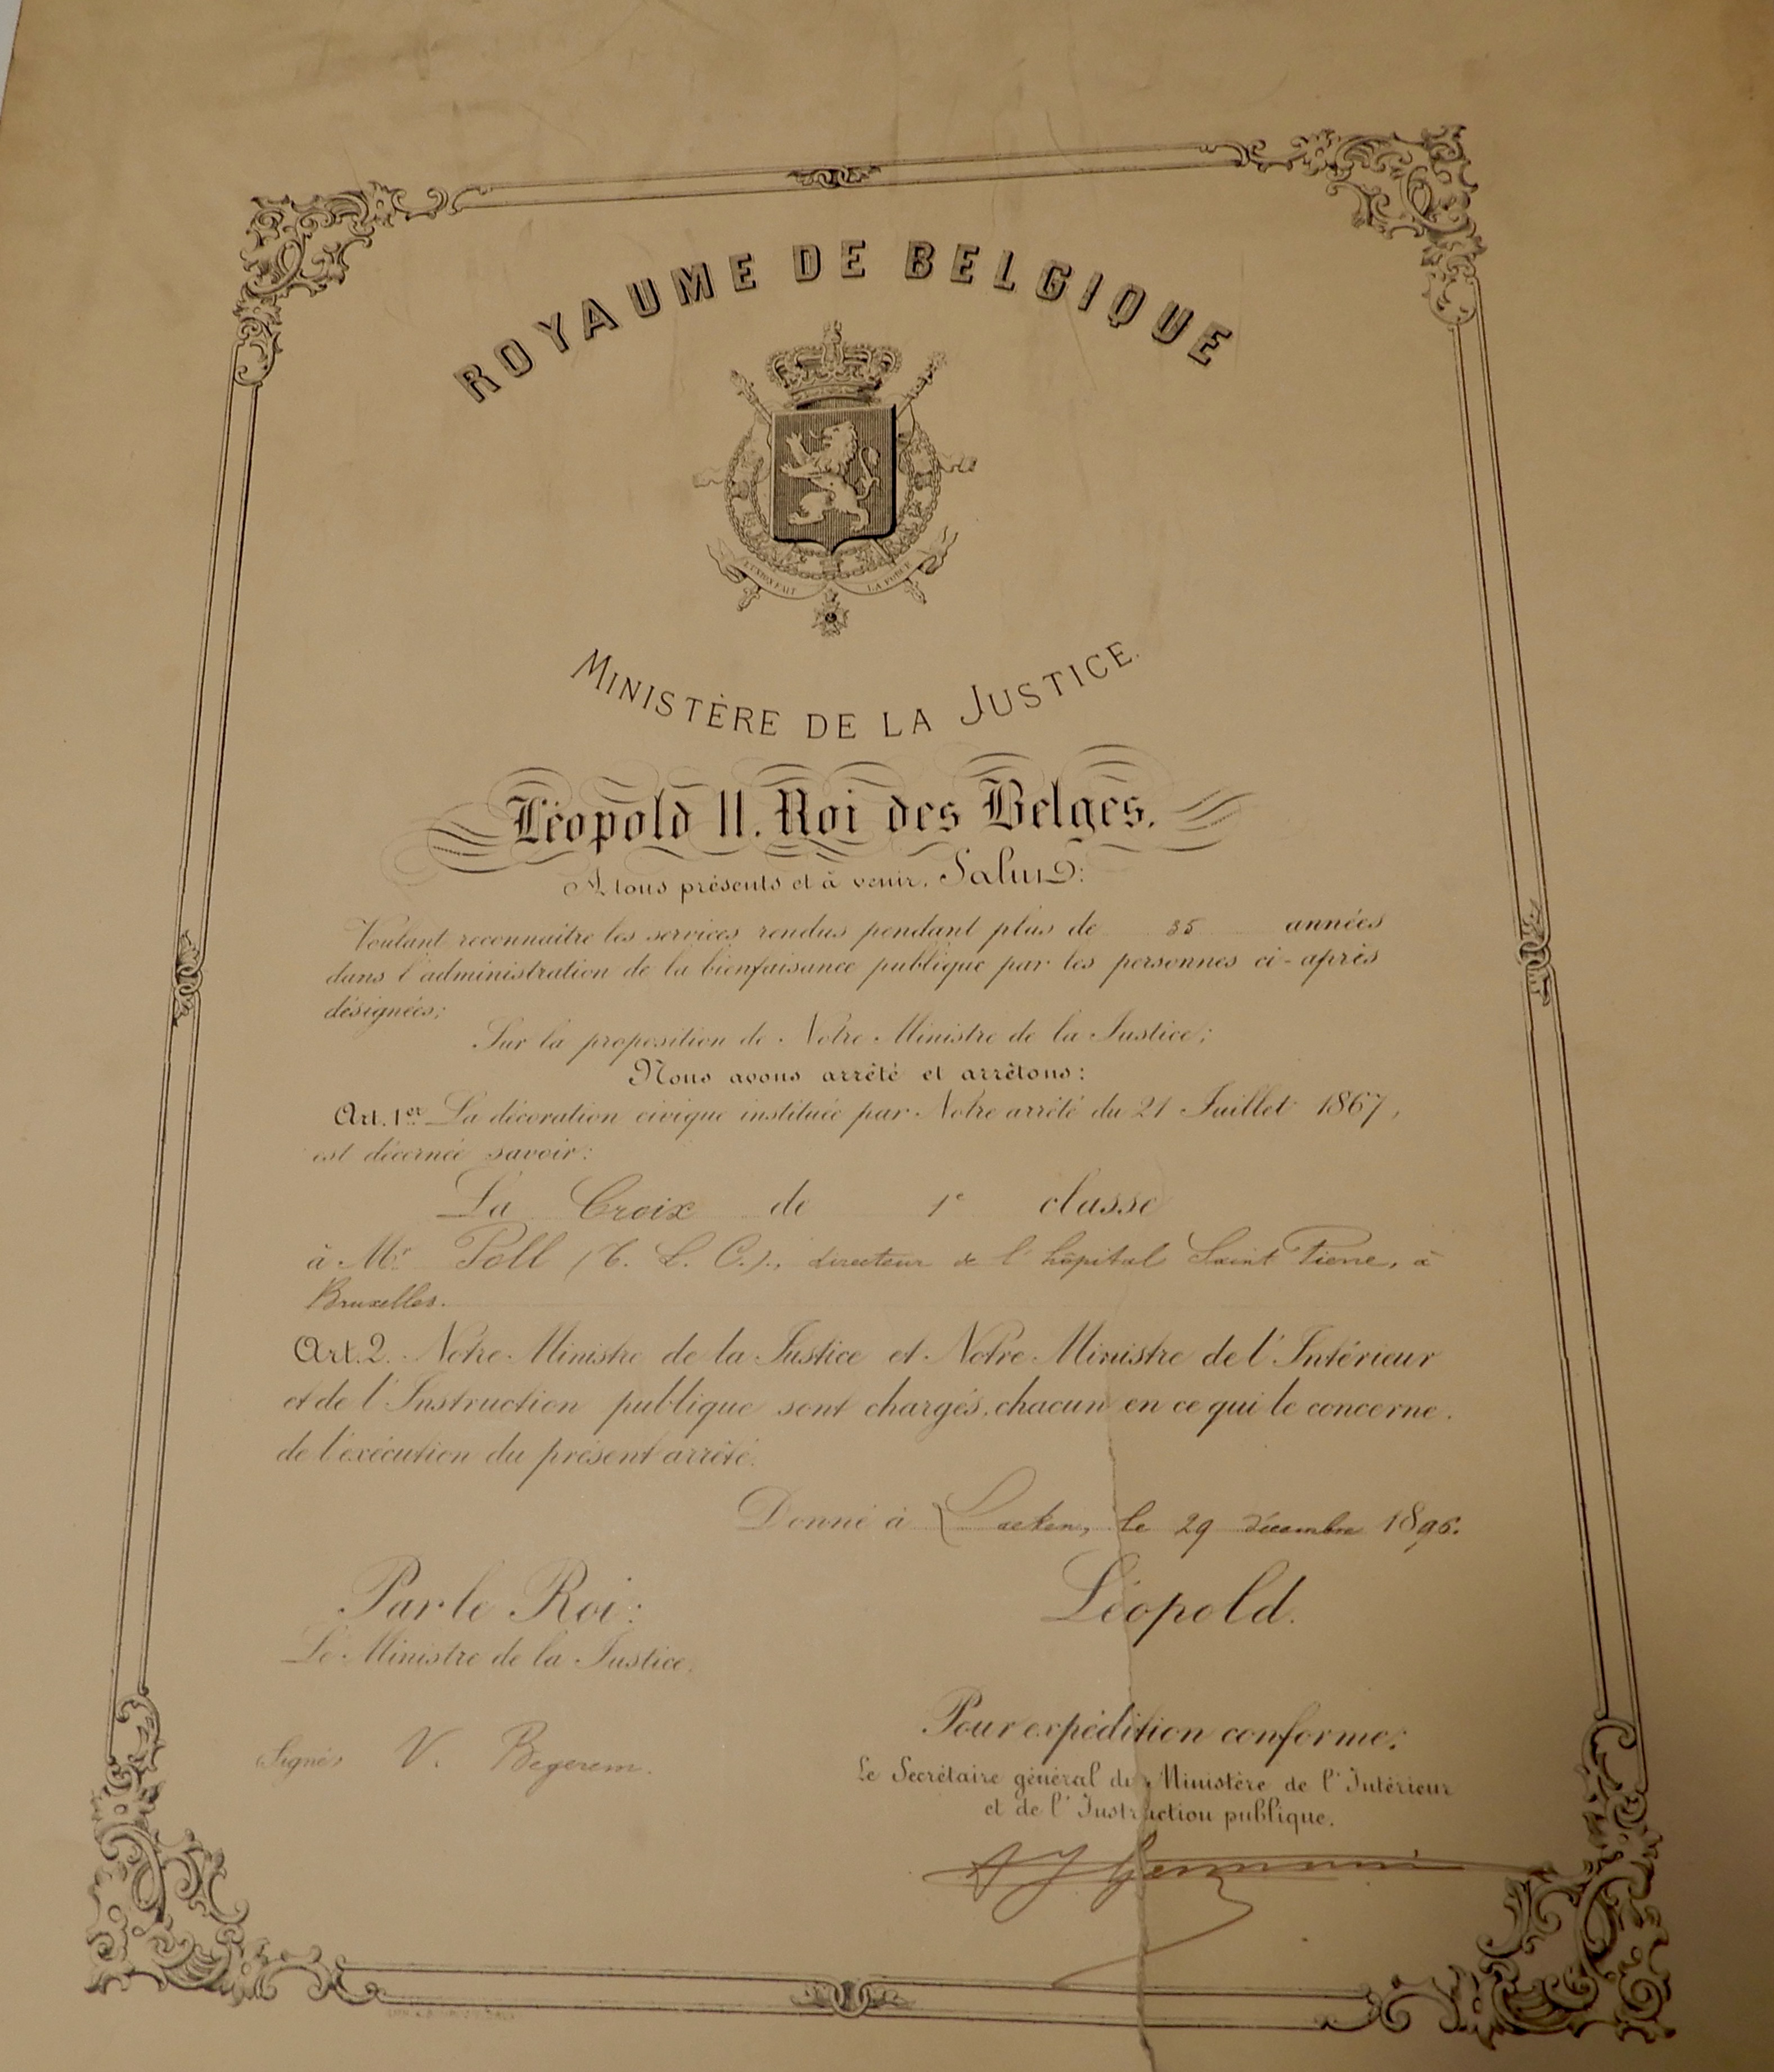 ROYAUME DE BELGIQUE
L'UNION FAIT LA FORCE
MINISTÈRE DE LA JUSTICE.
Léopold II. Roi des Belges,
A tous présents et à venir, Salut:
Voulant reconnaître les services rendus pendant plus de 35 années
dans l'administration de la bienfaisance publique par les personnes ci-après
désignées;
Sur la proposition de Notre Ministre de la Justice;
Nous avons arrêté et arrêtons:
Art. 1er La décoration civique instituée par Notre arrêté du 21 Juillet 1867,
est décernée savoir:
La Croix de 1e classe
à Mr Poll (C. L. C.), directeur de l'hôpital Saint Pierre, à
Bruxelles.
Art. 2. Notre Ministre de la Justice et Notre Ministre de l'Intérieur
et de l'Instruction publique sont chargés, chacun en ce qui le concerne,
de l'exécution du présent arrêté.
Donné à Laeken, le 29 décembre 1896.
Par le Roi:
Léopold.
Le Ministre de la Justice,
Pour expédition conforme:
Signé, V. Begerem.
Le Secrétaire général du Ministère de l'Intérieur
et de l'Instruction publique.